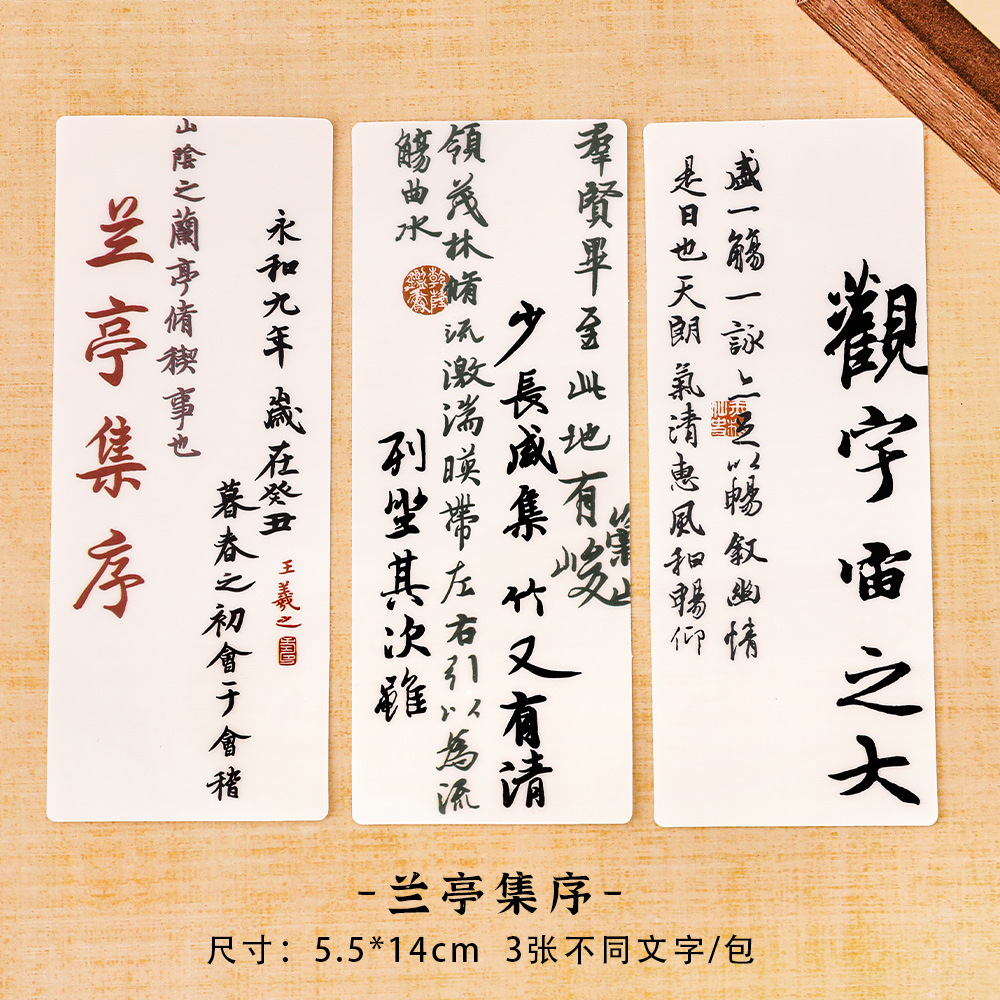 永和九年 歲在癸丑
王羲之
暮春之初會于會稽
山陰之蘭亭脩稧事也
兰亭集序
羣賢畢至此地有
崇山
峻
少長咸集 竹又有清
領茂林脩流激湍暎帶左右引以為流
觴曲水
乾隆鑑賞
列坐其次雖
觀宇宙之大
盛一觴一詠亦足以暢叙幽情
是日也天朗氣清惠風和暢仰
-兰亭集序-
尺寸：5.5*14cm 3张不同文字/包